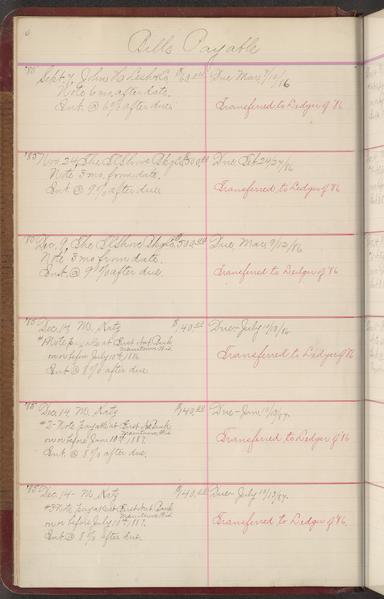 6
Bills Payable
'85 Sept. 7, John H. Due Mar. 7/10/86
Note 6 mo. after date.
Int. @ 6% after due. Transferred to Ledger of '86
'85 Nov. 24, The Due Feb 24/27/86
Note 3 mo. from date.
Int @ 9% after due Transferred to Ledger of '86
'85 Dec. 9, The Due, Mar. 9/12/86
Note 3 mo from date.
Int @ 9% after due. Transferred to Ledger of '86
'85 Dec. 14 M. Katz $40.00 Due July 10/13/86
#1 Note payable at First Nat Bank
on or before July 10th, 1886.
Int @ 8% after due. Transferred to Ledger of '86
'85 Dec. 14 M. Katz $40.00 Due Jan 10/13/87.
#2- Note payable at First Nat Bank
on or before Jan. 10th, 1887.
Int. @ 8% after due. Transferred to Ledger of '86
'85 Dec. 14- M. Katz $40.00 Due July 10/13/87.
#3 Note payable at First Nat Bank
on or before July 10th, 1887.
Int @ 8% after due. Transferred to Ledger of '86.